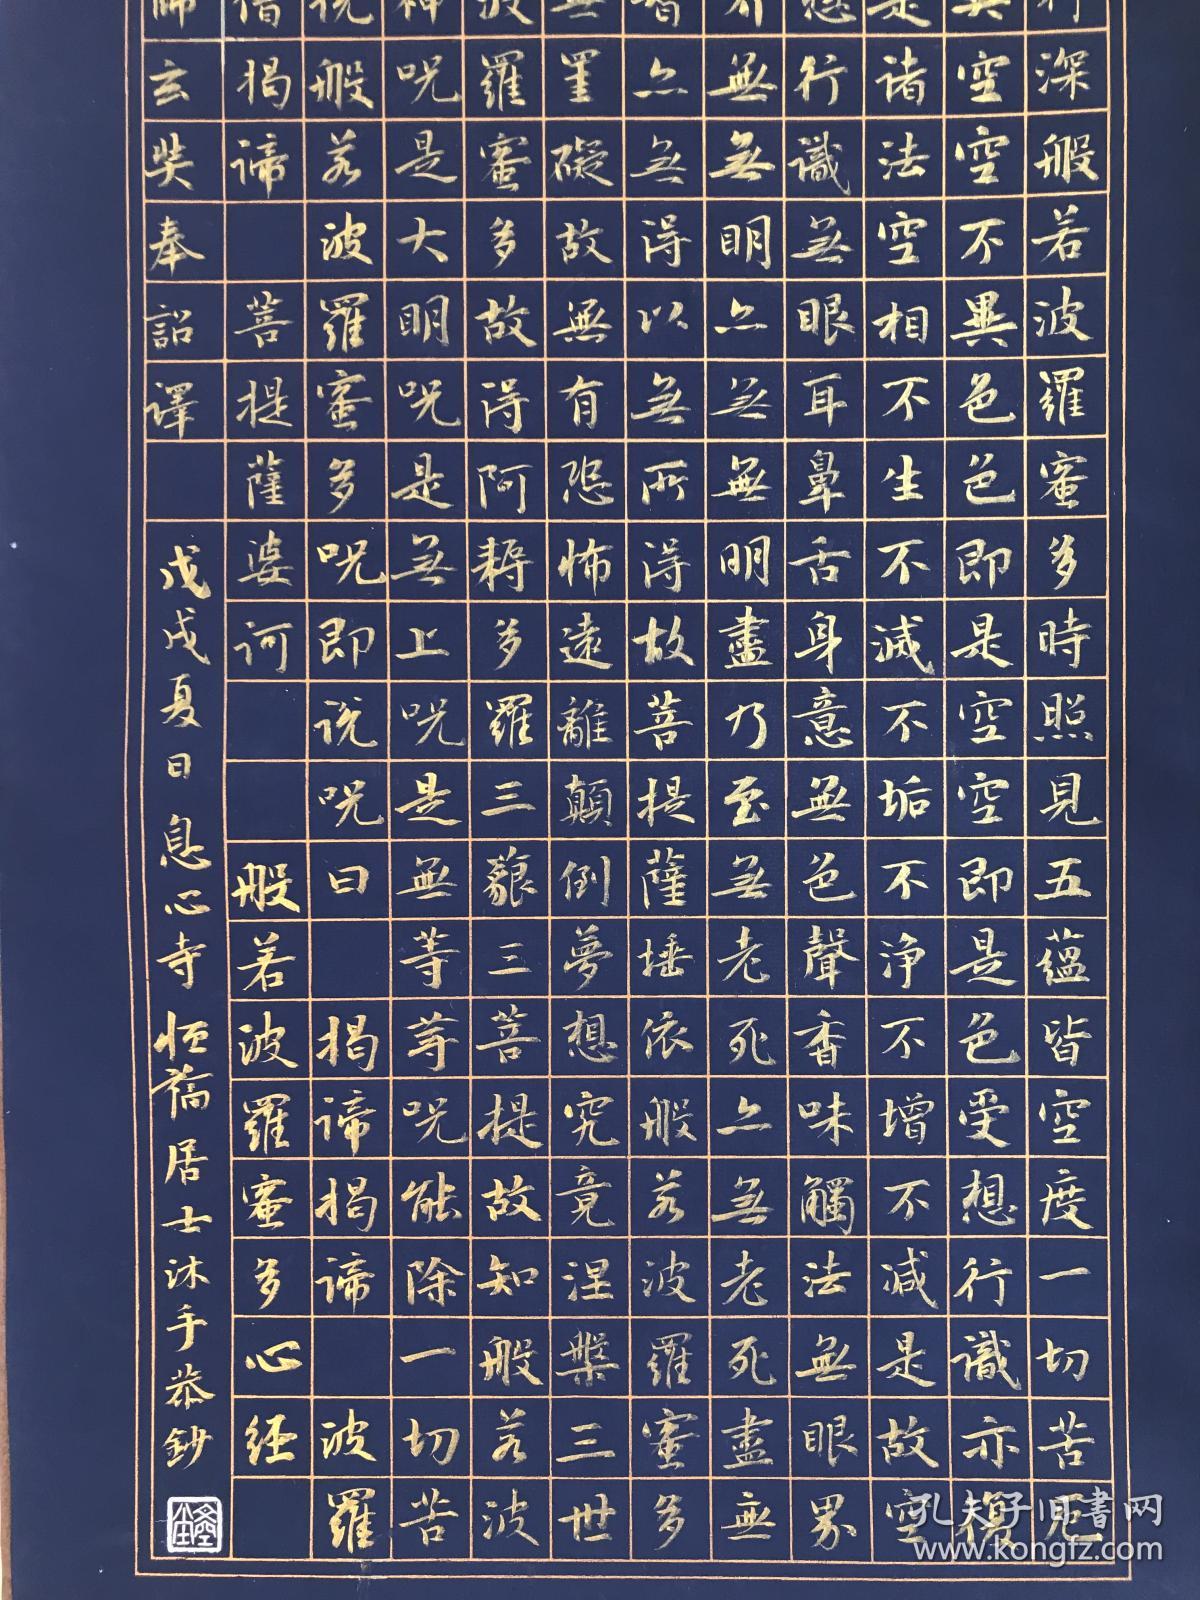 行深般若波羅蜜多時照見五蘊皆空度一切苦厄
異空空不異色色即是空空即是色受想行識亦復
是諸法空相不生不滅不垢不净不增不减是故空
想行識無眼耳鼻舌身意無色聲香味觸法無眼界
界無無明亦無無明盡乃至無老死亦無老死盡無
智亦無得以無所得故菩提薩埵依般若波羅蜜多
無罣礙故無有恐怖遠離顛倒夢想究竟涅槃三世
波羅蜜多故得阿耨多羅三藐三菩提故知般若波
神咒是大明咒是無上咒是無等等咒能除一切苦
說般若波羅蜜多咒即說咒曰 揭諦揭諦 波羅
僧揭諦 菩提薩婆訶 般若波羅蜜多心経
師玄奘奉詔譯
戊戌夏日息心寺恒喬居士沐手恭鈔
孔夫子旧書网
www.kongfz.com